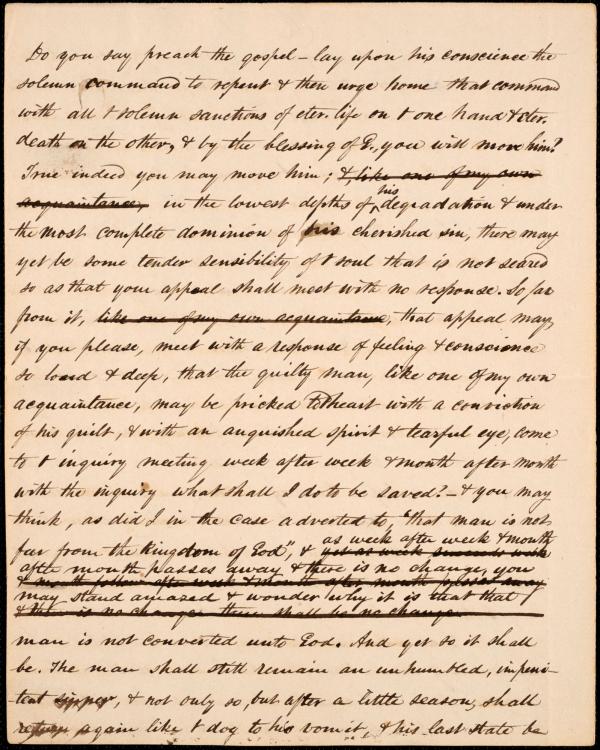 Do you say preach the gospel – lay upon his conscience the
solemn command to repent & then urge home that command
with all t solemn sanctions of eter. life on t one hand & eter.
death on the other, & by the blessing of G., you will move him?
True indeed you may move him; &, like one of my own
acquaintance, in the lowest depths of his degradation & under
the most complete dominion of his cherished sin, there may
yet be some tender sensibility of t soul that is not seared
so as that your appeal shall meet with no response. So far
from it, like one of my own acquaintance, that appeal may,
if you please, meet with a response of feeling & conscience
so loud & deep, that the guilty man, like one of my own
acquaintance, may be pricked to heart with a conviction
of his guilt, & with an anguished spirit & tearful eye, come
to t inquiry meeting week after week & month after month
with the inquiry what shall I do to be saved? – & you may
think, as did I in the case adverted to, "that man is not
far from the kingdom of God", & as week after week & month
after month passes away & there is no change, you
& month after week & month after month passes away
may stand amazed & wonder why it is that that
& there is no change there shall be no change
man is not converted unto God. And yet so it shall
be. The man shall still remain an unhumbled, impeni-
-tent sinner, & not only so, but after a little season, shall
return again like t dog to his vomit, & his last state be